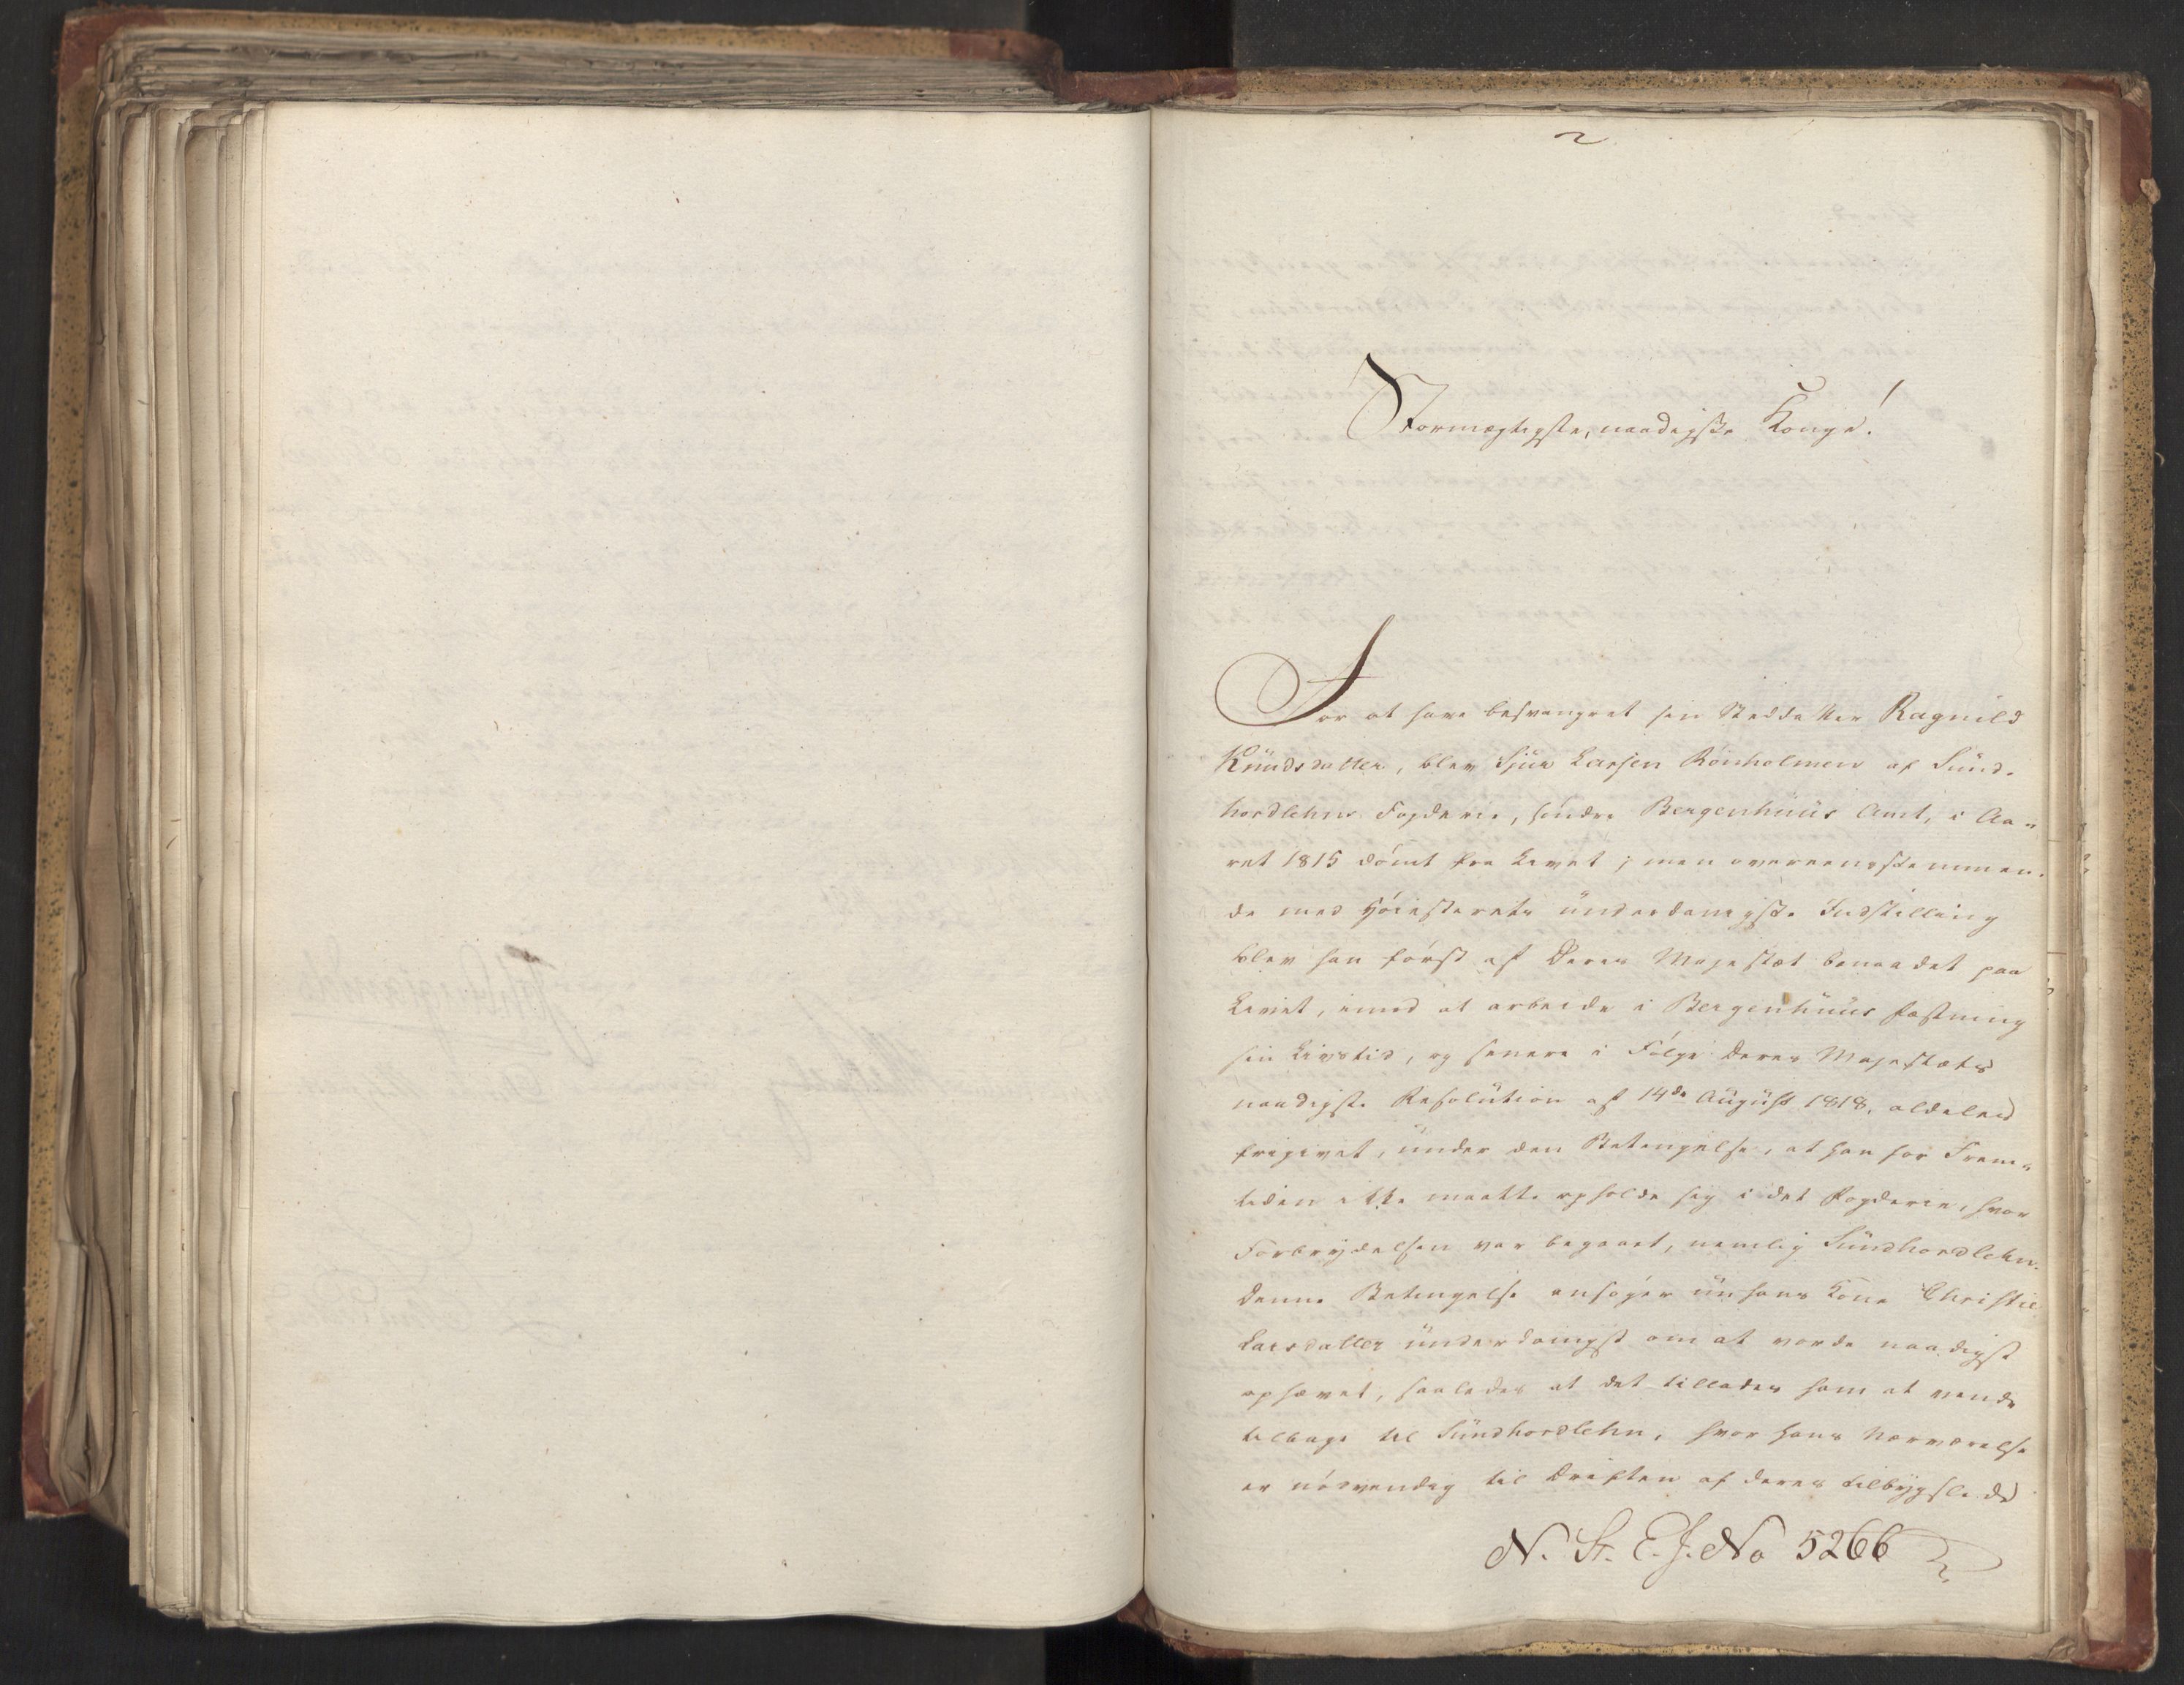 2
Stormægtigste, naadigste Konge!
For at have besvangret sin Steddatter Ragnild
Knudsdatter, blev Sjur Larsen Rønholmen af Sund-
hordlehns Fogderie, søndre Bergenhuus Amt, i Aa-
ret 1815 dømt fra Livet; men overeensstemmen-
de med Høiesterets underdanigste Indstilling
blev han først af Deres Majestæt benaadet paa
Livet, imod at arbeide i Bergenhuus Fæstning
sin Livstid, og senere i Følge Deres Majestæts
naadigste Resolution af 14de August 1818, aldeles
frigivet, under den Betingelse, at han for Frem-
tiden ikke maatte opholde sig i det Fogderie, hvor
Forbrydelsen var begaaet, nemlig Sundhordlehn.
Denne Betingelse ansøger nu hans Kone Christie
Larsdatter underdanigst om at vorde naadigst
ophævet, saaledes at det tillades ham at vende
tilbage til Sundhordlehn, hvor hans Nærværelse
er nødvendig til Driften af deres tilbygslede
N. St. E. J. No 5266